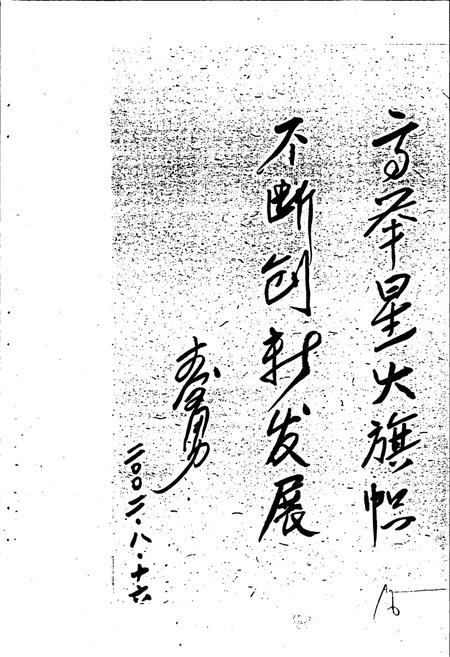 高举星火旗帜
不断创新发展
二〇〇二.八.十六